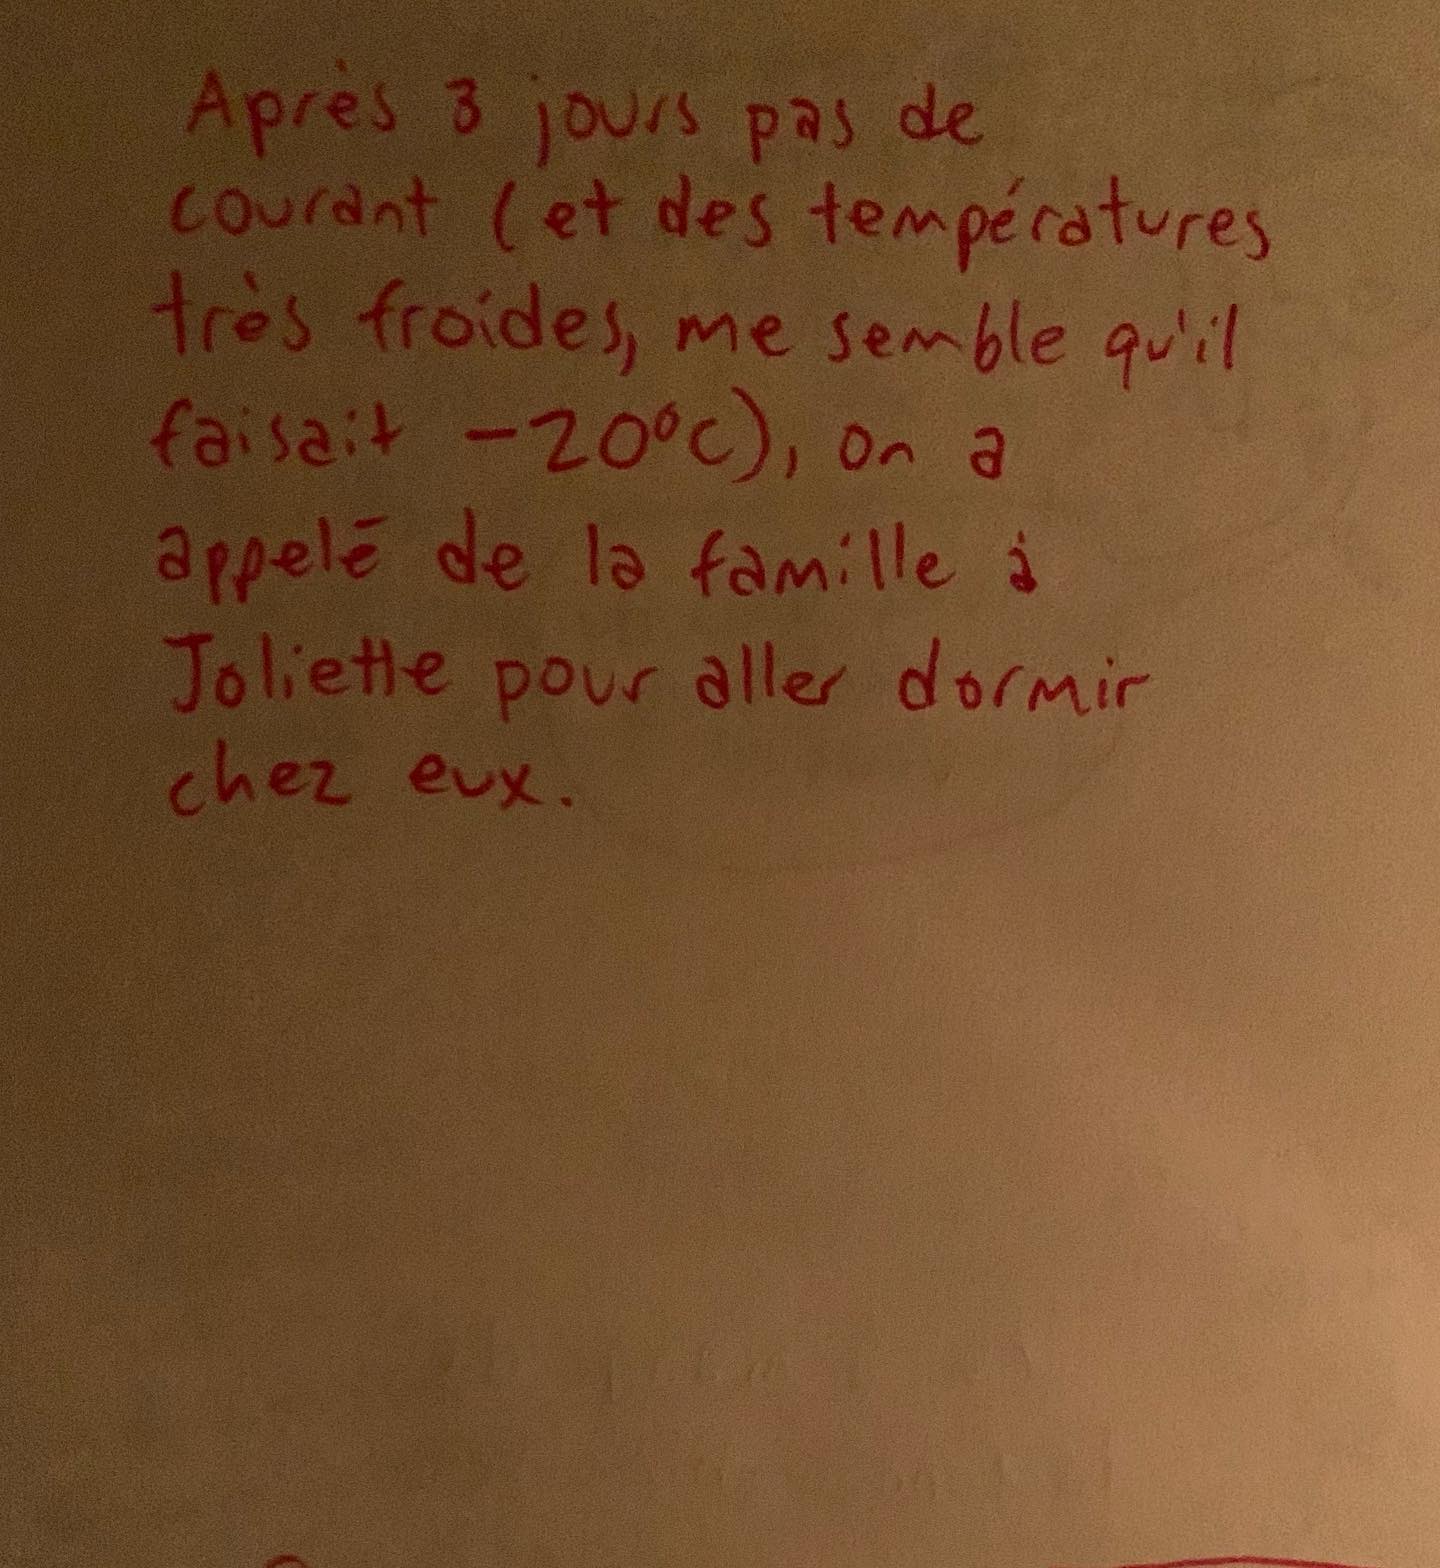 Après 3 jours pas de
courant (et des températures
très froides, me semble qu'il
faisait -20°C), on a
appelé de la famille à
Joliette pour aller dormir
chez eux.